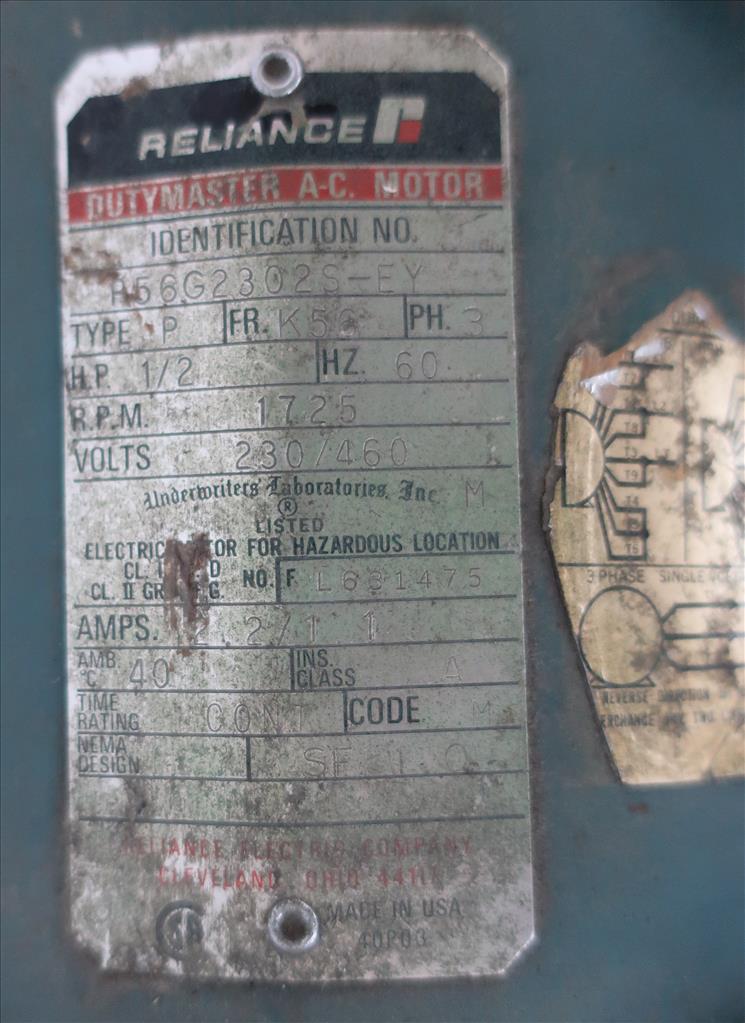 RELIANCE
DUTYMASTER A-C. MOTOR
IDENTIFICATION NO.
P56G2302S-EY
TYPE P FR. K56 PH. 3
H.P. 1/2 HZ. 60
R.P.M. 1725
VOLTS 230/460
Underwriters Laboratories, Inc. M
®
LISTED
ELECTRIC FOR HAZARDOUS LOCATION
CL. I D
CL. II G. NO. F L631475
AMPS. 2.2/1 1
AMB. °C 40 INS. CLASS A
TIME RATING CONT CODE M
NEMA DESIGN SF 1 0
RELIANCE ELECTRIC COMPANY
CLEVELAND, OHIO 44117
SA MADE IN USA
40P03
T8
T3
T9
T4
T6
3 PHASE SINGLE
REVERSE DIRECTION
TWO